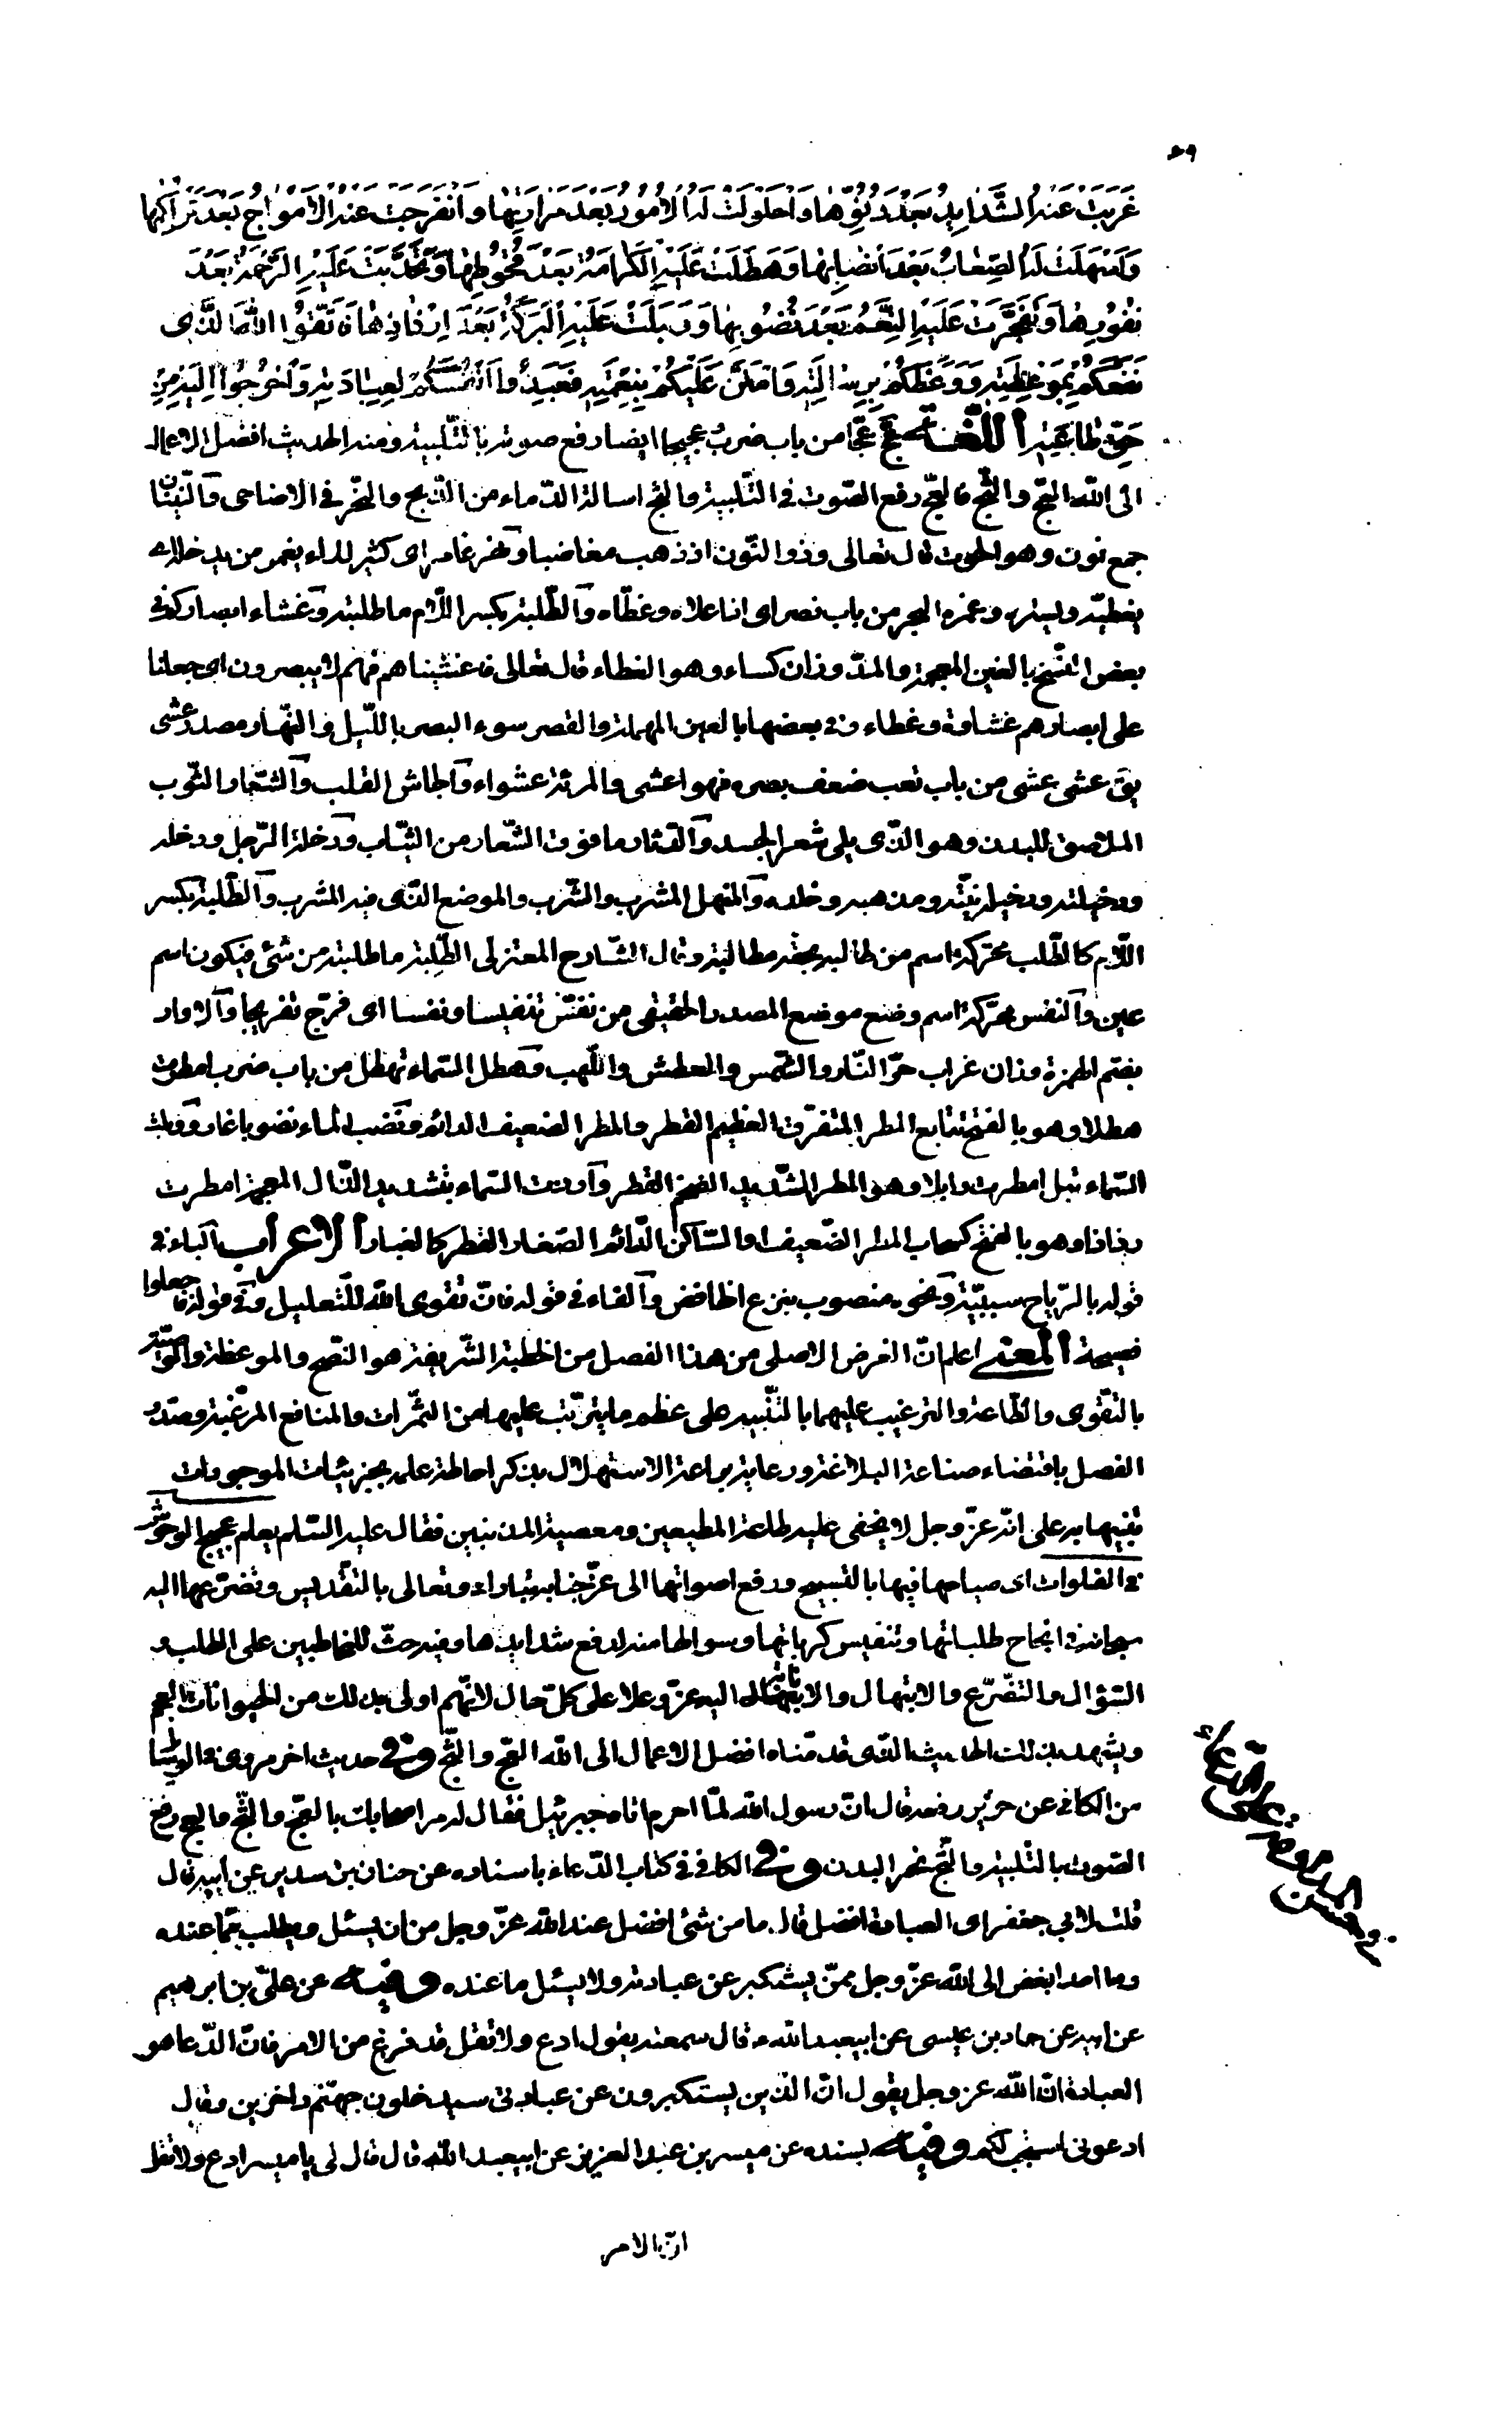 ٥٩
عَزَبَتْ عَنْهُ الشَّدَايِدُ بَعْدَ دُنُوِّهَا وَاحْلَوْلَتْ لَهُ الْأُمُورُ بَعْدَ مَرَارَتِهَا وَانْفَرَجَتْ عَنْهُ الْأَمْوَاجُ بَعْدَ تَرَاكُمِهَا
وَأَسْهَلَتْ لَهُ الصِّعَابُ بَعْدَ انْصَابِهَا وَهَطَلَتْ عَلَيْهِ الْكَرَامَةُ بَعْدَ قُحُوطِهَا وَتَحَدَّبَتْ عَلَيْهِ الرَّحْمَةُ بَعْدَ
نُفُورِهَا وَتَفَجَّرَتْ عَلَيْهِ النِّعَمُ بَعْدَ نُضُوبِهَا وَوَبَلَتْ عَلَيْهِ الْبَرَكَةُ بَعْدَ إِرْذَاذِهَا فَاتَّقُوا اللَّهَ الَّذِي
نَفَعَكُمْ بِمَوْعِظَتِهِ وَوَعَظَكُمْ بِرِسَالَتِهِ وَامْتَنَّ عَلَيْكُمْ بِنِعْمَتِهِ فَعَبِّدُوا أَنْفُسَكُمْ لِعِبَادَتِهِ وَاخْرُجُوا إِلَيْهِ مِنْ
حَقِّ طَاعَتِهِ اللغة عجّ عجّا من باب ضرب عجيجا ايضا رفع صوته بالتّلبية ومنه الحديث افضل الاعمال
الى اللّه العجّ والثّج فالعجّ رفع الصّوت فى التّلبية والثج اسالة الدّماء من الذّبح والنّحر فى الاضاحى والنّينان
جمع نون وهو الحوت قال تعالى وذو النّون اذ ذهب مغاضبا وبحر غامر اى كثير الماء يغمر من يدخله
يغطيّه ويستره وغمره البحر من باب نصر اى اذا علاه وغطّاه والطّلبة بكسر اللّام ما طلبته وغشاء ابصاركم فى
بعض النّسخ بالغين المعجمة والمدّ وزان كساء وهو الغطاء قال تعالى فاغشيناهم فهم لا يبصرون اى جعلنا
على ابصارهم غشاوة وغطاء وفى بعضها بالعين المهملة والقصر سوء البصر باللّيل والنّهار مصدر عشى
يق عشى عشى من باب تعب ضعف بصره فهو اعشى والمرئة عشواء والجاش القلب والشّعار الثّوب
الملاصق للبدن وهو الذّى يلى شعر الجسد والدّثار ما فوق الشّعار من الثّياب ودخلة الرّجل ودخله
ودخيلته ودخيله نيّته ومذهبه وخلده والمنهل المشرب والشّرب والموضع الذّى فيه المشرب والطّلبة بكسر
اللّام كالطّلب محرّكة اسم من طالبه بحقّه مطالبة وقال الشّارح المعتزلى الطّلبة ما طلبته من شئ فيكون اسم
عين والنفس محرّكة اسم وضع موضع المصدر الحقيقى من نفّس تنفيسا ونفسا اى فرّج تفريجا والاوار
بضم الهمزة وزان غراب حرّ النّار والشّمس والعطش واللّهب وهطل السّماء تهطل من باب ضرب امطرت
هطلا وهو بالفتح تتابع المطر المتفرّق العظيم القطر والمطر الضعيف الدائم ونضب الماء نضوبا غار ووبلت
السّماء تبل امطرت وابلا وهو المطر الشّديد الضخم القطر وارذّت السّماء بتشديد الذّال المعجمة امطرت
رذاذا وهو بالفتح كسحاب المطر الضّعيف او السّاكن الدّائم الصّغار القطر كالغبار الاعراب الباء فى
قوله بالرّياح سببيّة ونحوه منصوب بنزع الخافض والفاء فى قوله فانّ تقوى اللّه للتّعليل وفى قوله فاجعلوا
فصيحة المعنى اعلم انّ الغرض الاصلى من هذا الفصل من الخطبة الشّريفة هو النّصح والموعظة والوصيّة
بالتّقوى والطّاعة والترغيب عليهما بالتّنبيه على عظم ما يترتّب عليها من الثّمرات والمنافع المرغّبة وصدّر
الفصل باقتضاء صناعة البلاغة ورعاية براعة الاستهلال بذكر احاطة علمه بجزئيّات الموجودات
تنبيها به على انّه عزّ وجل لا يخفى عليه طاعة المطيعين ومعصية المذنبين فقال عليه السّلم يعلم عجيج الوحوش
فى الفلوات اى صياحها فيها بالتّسبيح ورفع اصواتها الى عزّ جنابه تبارك وتعالى بالتقديس وتضرّعها اليه
سبحانه فى انجاح طلباتها وتنفيس كرباتها وسوالها منه لدفع شدايدها وفيه حثّ للمخاطبين على الطلب و
السّؤال والتضّرّع والابتهال والانابة اليه عزّ وعلا على كلّ حال لانّهم اولى بذلك من الحيوانات العجم
ويشهد بذلك الحديث الذّى قدّمناه افضل الاعمال الى اللّه العجّ والثّج وفى حديث اخر مروى فى الوسائل
من الكافى عن حريز رفعه قال انّ رسول اللّه لمّا احرم اتاه جبرئيل فقال له مر اصحابك بالعجّ والثّج فالعج رفع
الصّوت بالتّلبية والثّج نحر البدن وفى الكافى فى كتاب الدّعاء باسناده عن حنان بن سدير عن ابيه قال
قلت لابى جعفر اى العبادة افضل قال ما من شئ افضل عند اللّه عزّ وجل من ان يسئل ويطلب ممّا عنده
وما احد ابغض الى اللّه عزّ وجل ممّن يستكبر عن عبادته ولا يسئل ما عنده وفيه عن علىّ بن ابرهيم
عن ابيه عن حماد بن عيسى عن ابيعبد اللّه قال سمعته يقول ادع ولا تقل قد فرغ من الامر فانّ الدّعا هو
العبادة انّ اللّه عز وجل يقول انّ الذّين يستكبرون عن عبادتى سيدخلون جهنّم داخرين وقال
ادعونى استجب لكم وفيه بسنده عن ميسر بن عبد العزيز عن ابيعبد اللّه قال قال لى يا ميسر ادع ولا تقل
انّ الامر